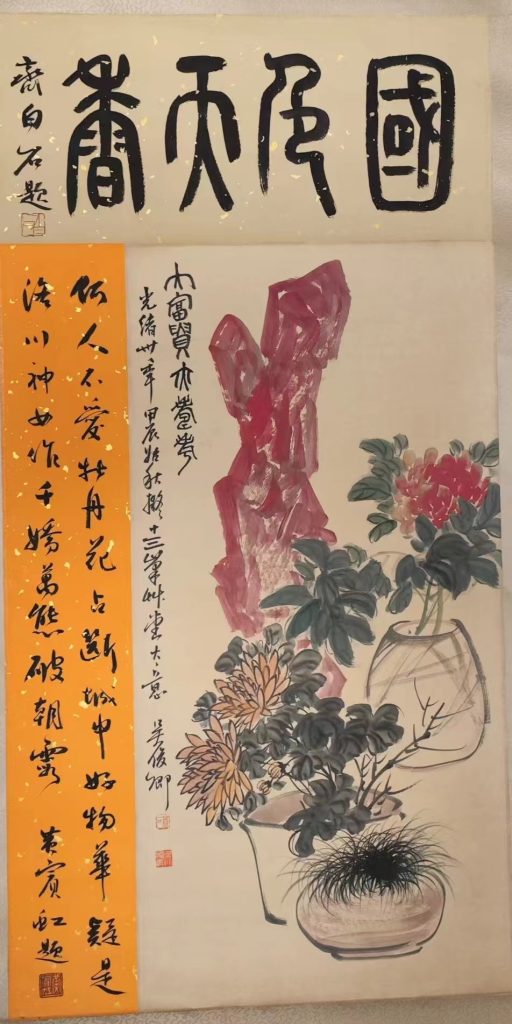 國色天香
齊白石題
大富貴亦壽考
光緒卅年甲辰始秋擬十三峯艸堂大意 吳俊卿
何人不愛牡丹花占斷城中好物華疑是
洛川神女作千嬌萬態破朝霞 黃賓虹題